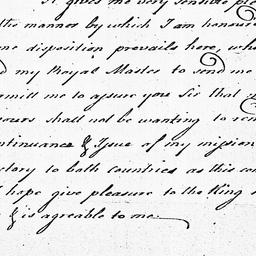 It gives me very sensible ple
the manner by which I am honour
me disposition prevails here, wh
my Royal Master to send me
ermit me to assure you Sir that
yours shall not be wanting to ren
ntinuance & Issue of my mission
ctory to both countries as this co
I hope give pleasure to the King
& is agreable to me.